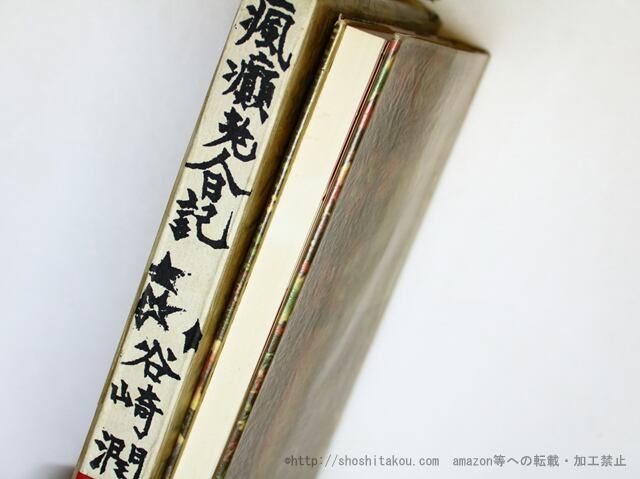 瘋癲老人日記
谷崎潤
©http://shoshitakou.com amazon等への転載・加工禁止